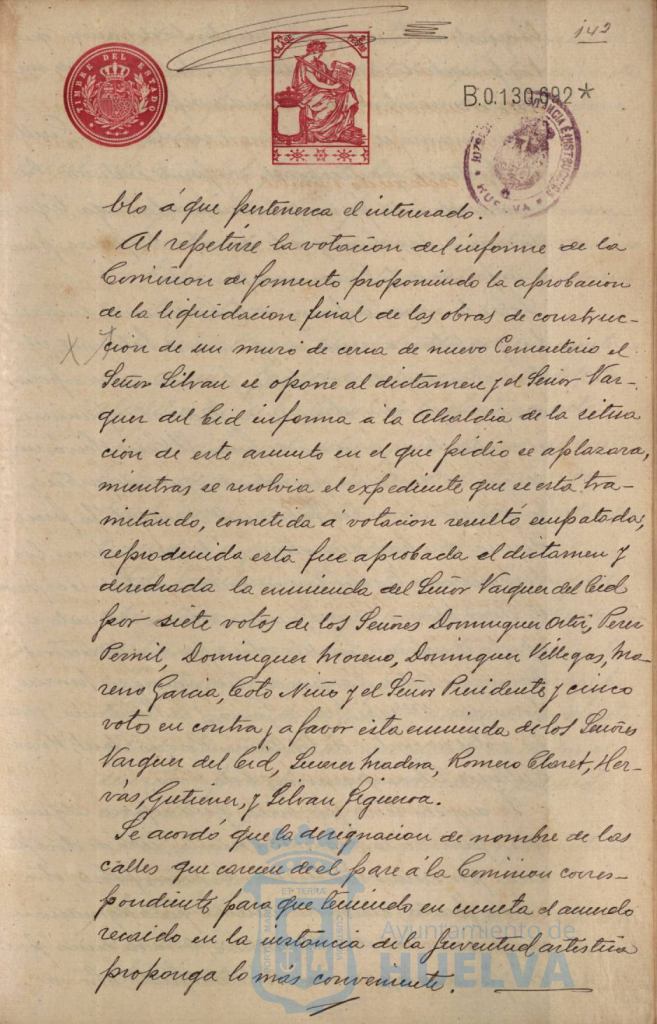 142
TIMBRE DEL ESTADO
CLASE
PESOS
B.0.130.692*
HUELVA
blo á que pertenesca el interesado.
Al repetirse la votacion del informe de la
Comision de fomento proponiendo la aprobacion
de la liquidacion final de las obras de construc-
cion de un muro de cerca de nuevo Cementerio el
Señor Silvan se opone al dictamen y el Señor Vaz-
quez del Cid informa á la Alcaldia de la situa
cion de este asunto en el que pidio se aplazara,
mientras se resolvia el expediente que se está tra-
mitando, cometida á votacion resultó empatada;
reproducida esta fue aprobada el dictamen y
desechada la enmienda del Señor Vazquez del Cid
por siete votos de los Señores Dominguez Ortiz, Perez
Pernil, Dominguez Moreno, Dominguez Villegas, Mo-
reno Garcia, Coto Niño y el Señor Presidente y cinco
votos en contra y a favor esta enmienda de los Señores
Vazquez del Cid, Madera, Romero Claret, Her-
vás, Gutierrez, y Silvan Figueroa.
Se acordó que la designacion de nombre de las
calles que carecen de el pase á la Comision corres-
pondiente para que teniendo en cuneta el acuerdo
recaido en la instancia de la Juventud artistica
proponga lo más conveniente.
Ayuntamiento de
HUELVA